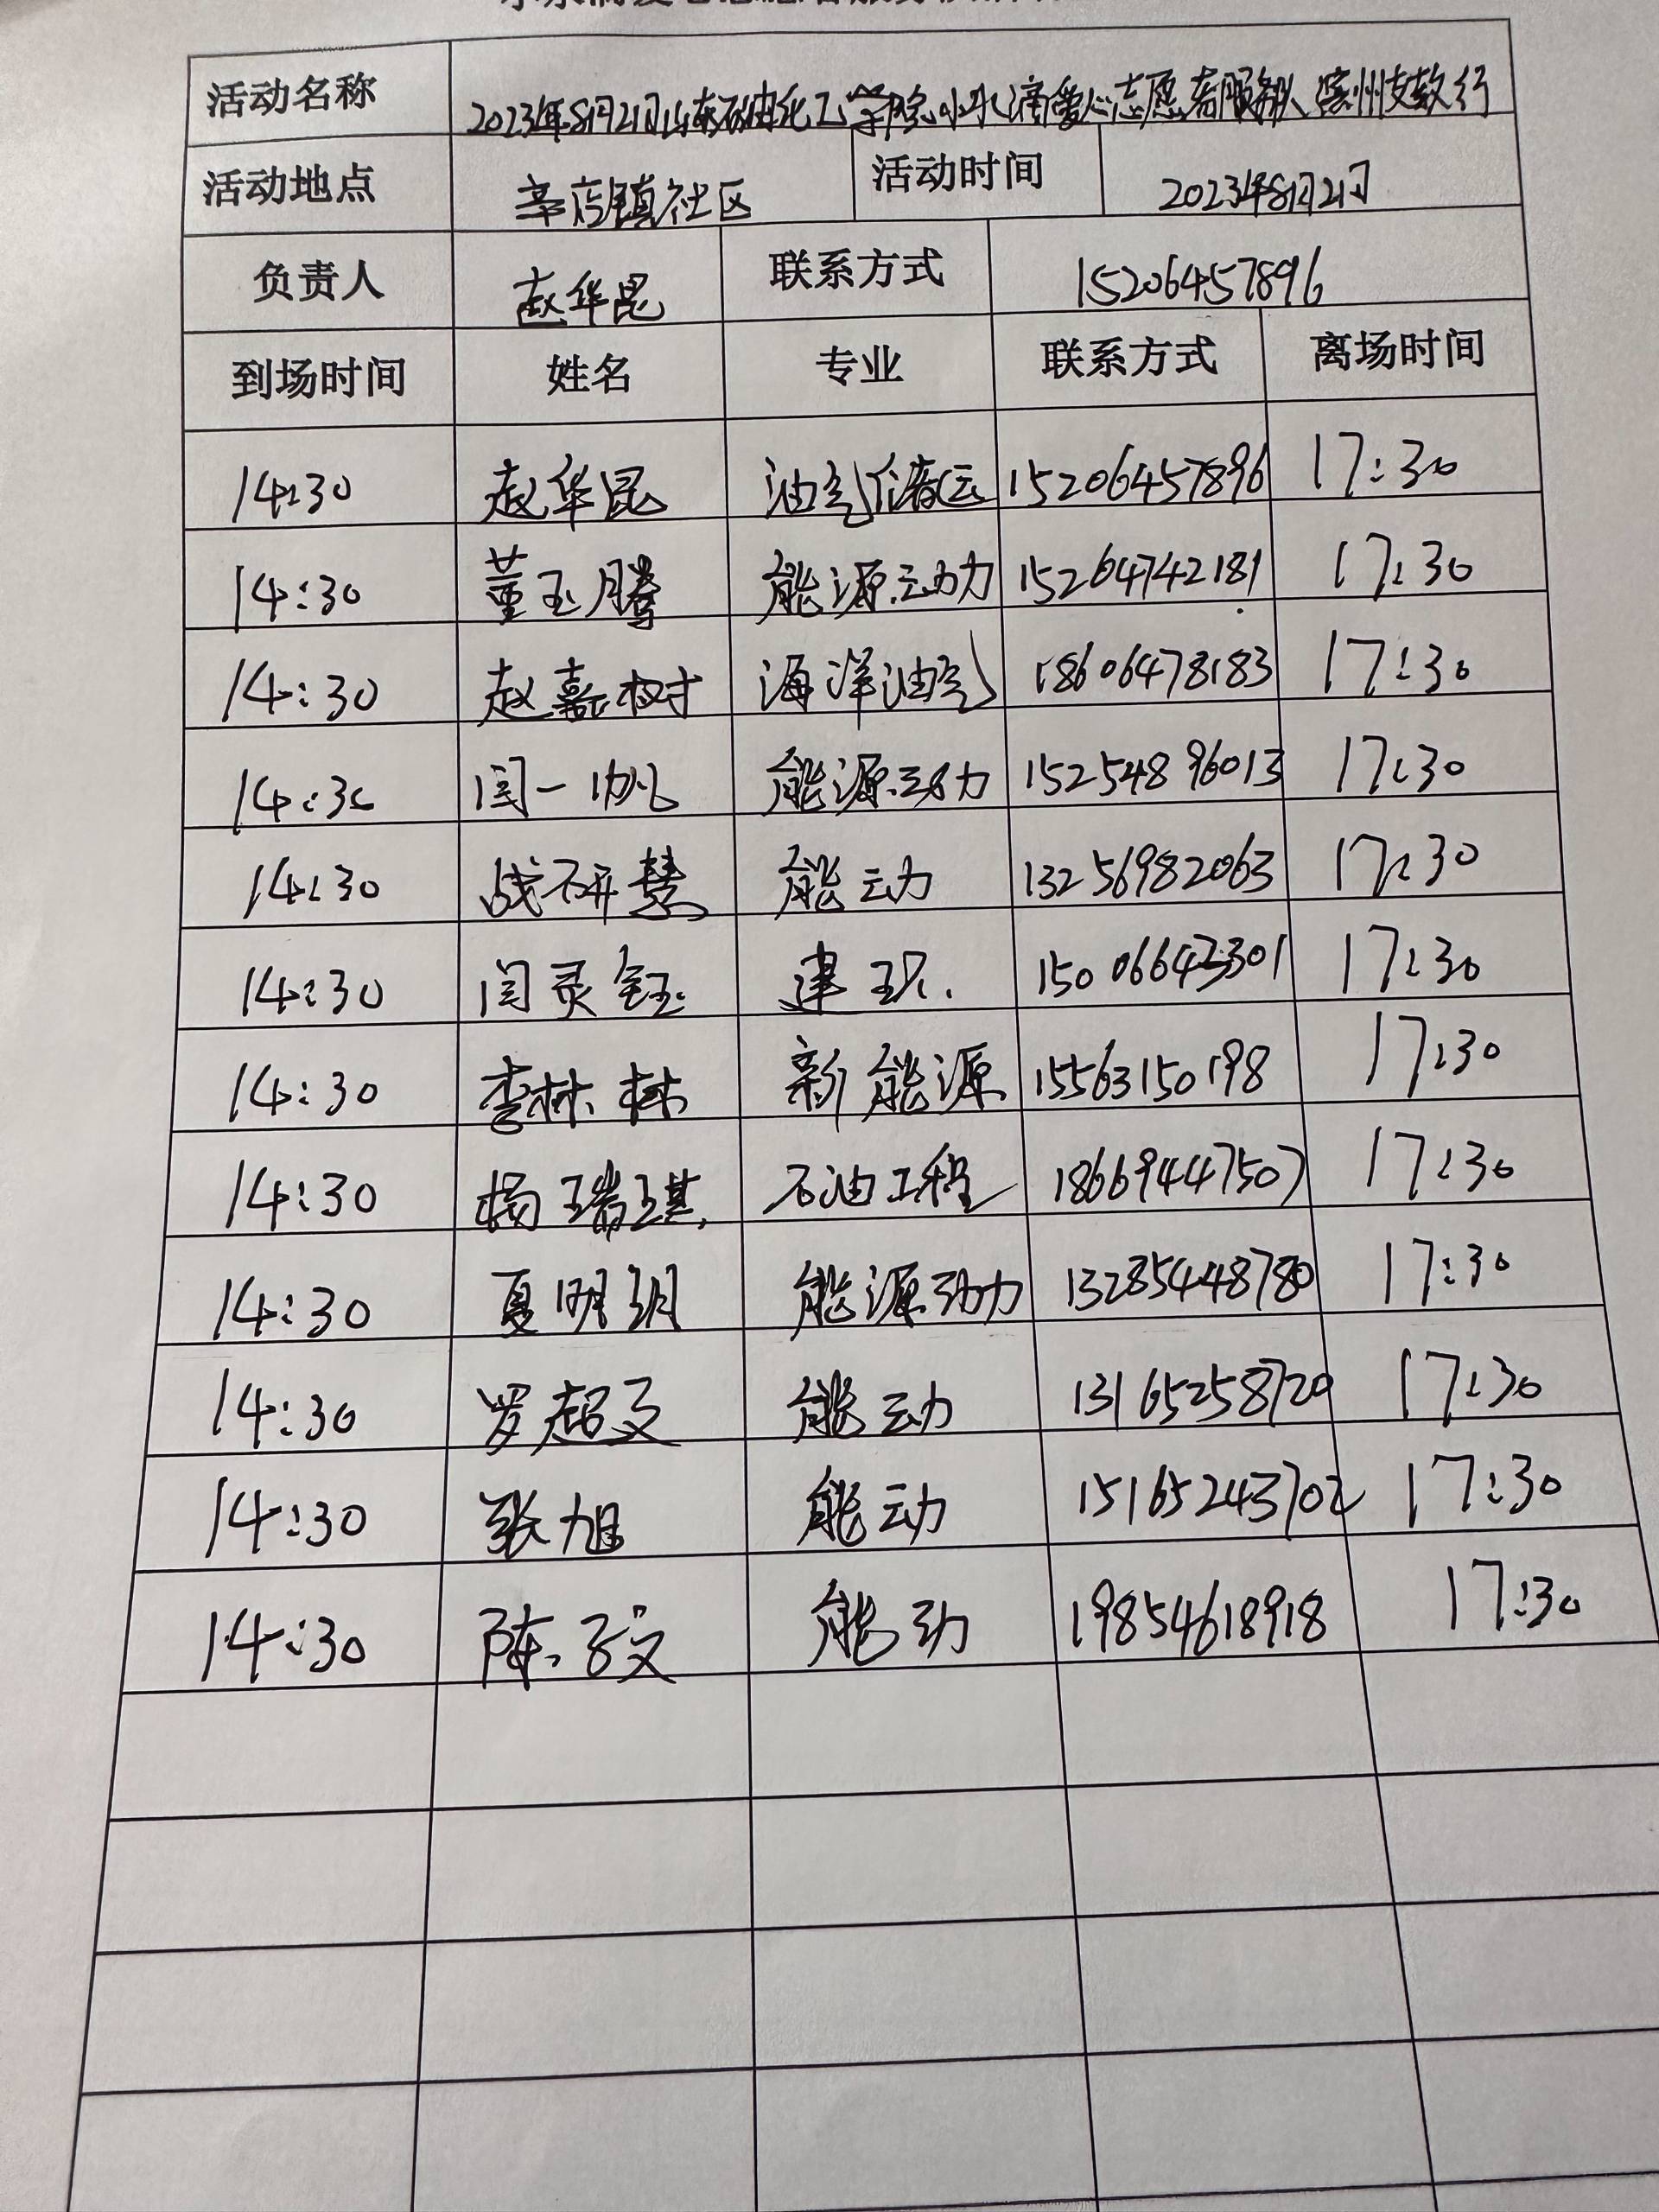 活动名称 2023年8月21日山东石油化工学院小水滴爱心志愿者服务队滨州支教行
活动地点 辛店镇社区 活动时间 2023年8月21日
负责人 赵华昆 联系方式 15206457896
到场时间 姓名 专业 联系方式 离场时间
14:30 赵华昆 油气储运 15206457896 17:30
14:30 董玉腾 能源动力 15264742181 17:30
14:30 赵嘉树 海洋油气 18606478183 17:30
14:30 闫一帆 能源动力 15254896013 17:30
14:30 战研慧 能动 13256982063 17:30
14:30 闫灵钰 建环 15006642301 17:30
14:30 李林林 新能源 15563150198 17:30
14:30 杨瑞琪 石油工程 18669447507 17:30
14:30 夏明玥 能源动力 13285448780 17:30
14:30 罗超文 能动 13165258720 17:30
14:30 张旭 能动 15165243702 17:30
14:30 陈子文 能动 19854618918 17:30